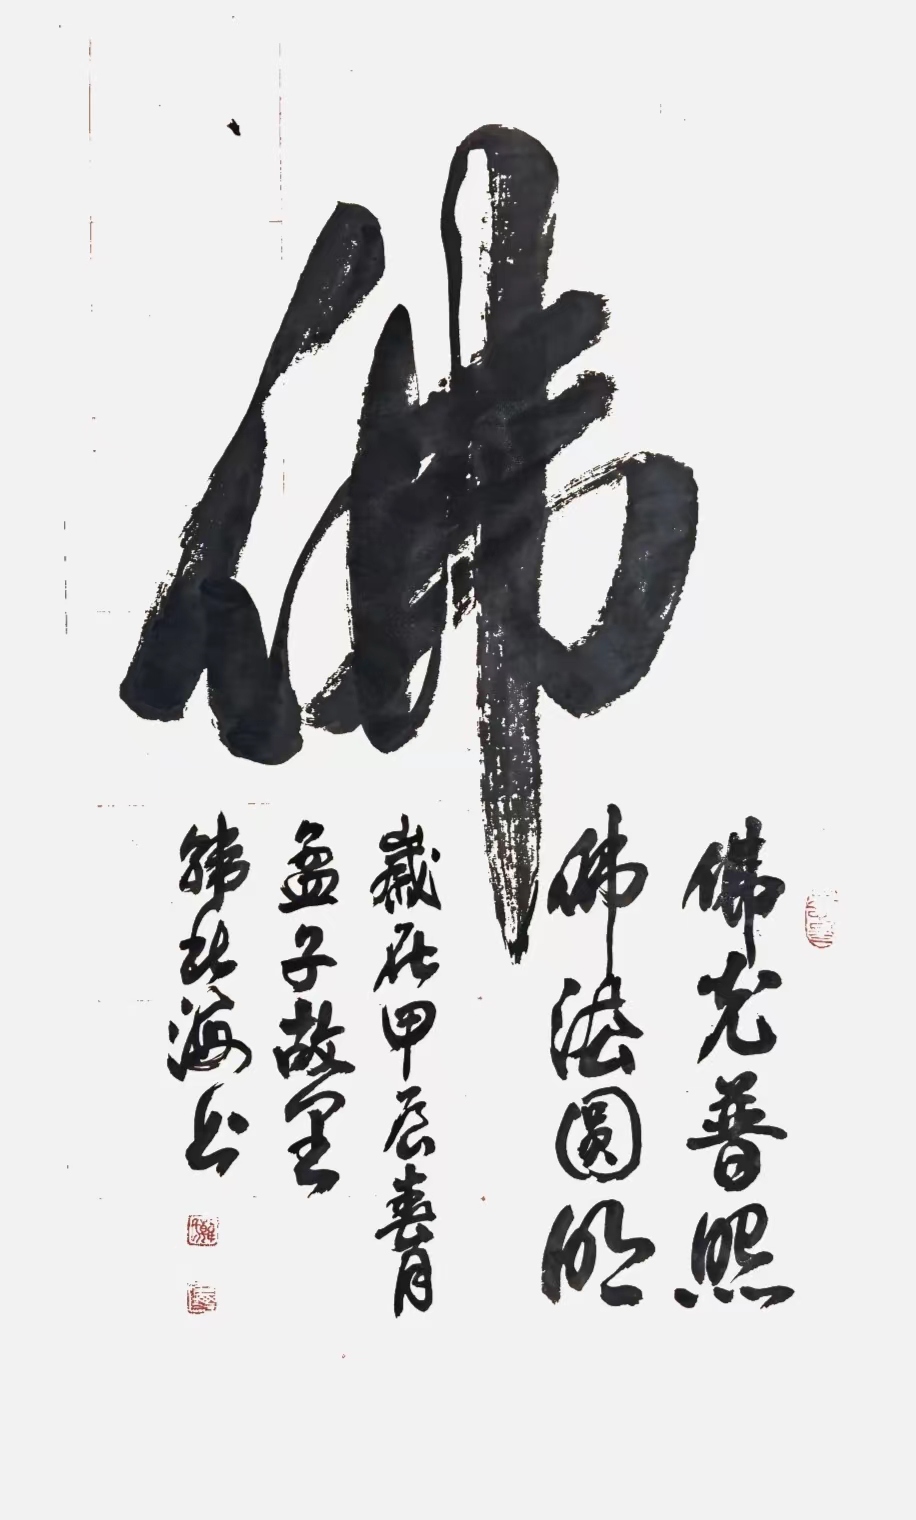 佛
佛光普照
佛法圓明
歲在甲辰春月
孟子故里
韩北海书